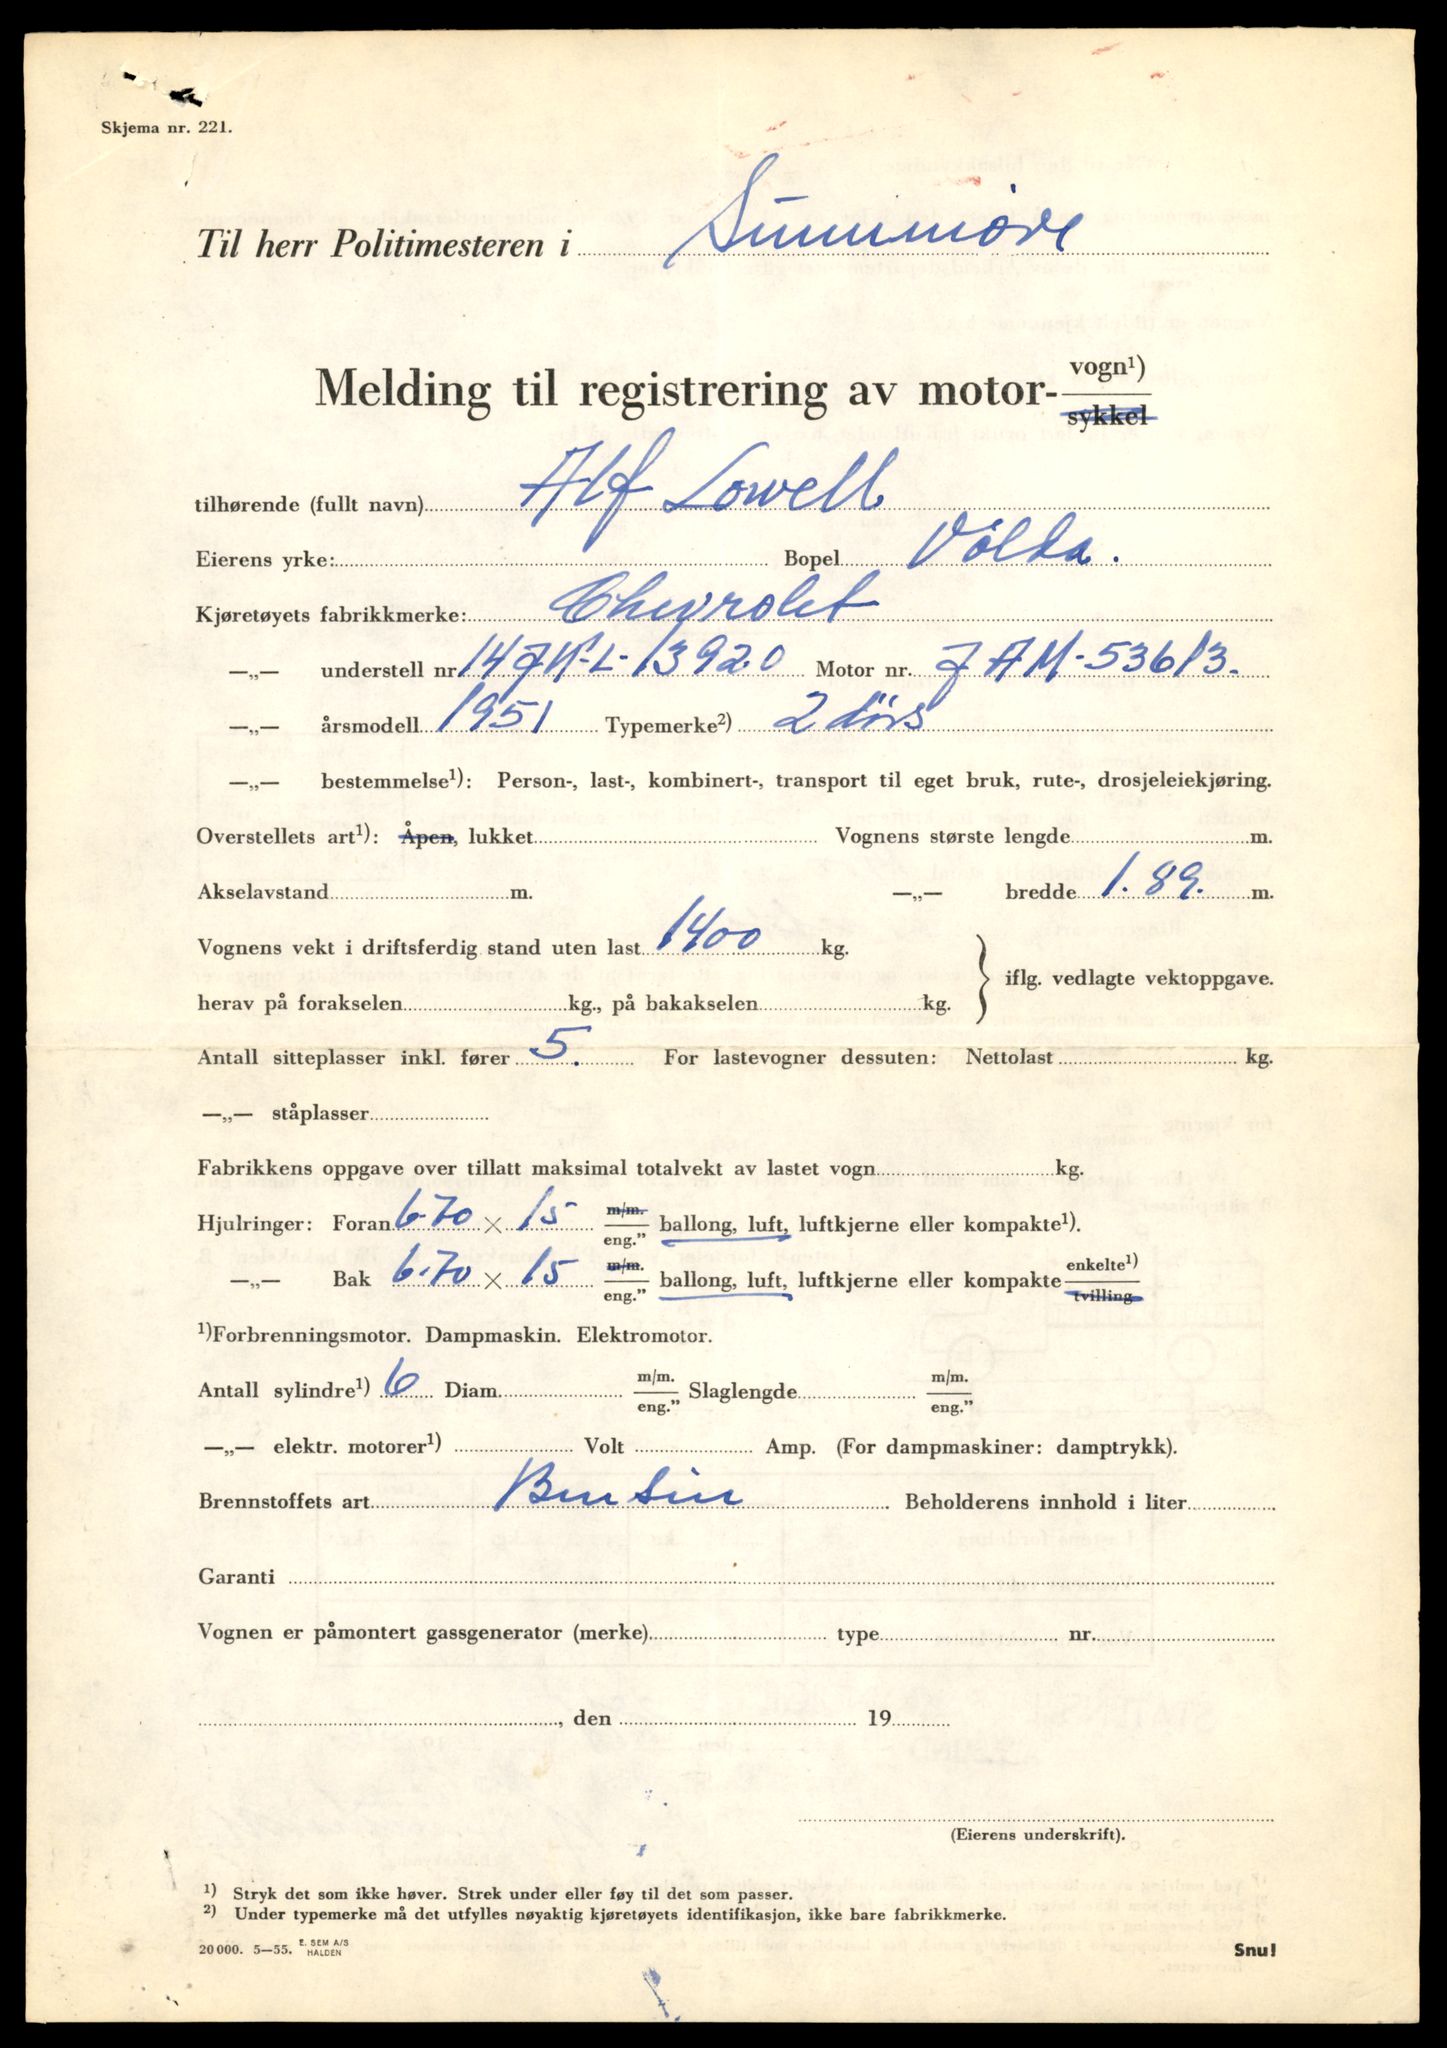 Skjema nr. 221.
Til herr Politimesteren i Sunnmøre
Melding til registrering av motor- vogn¹) sykkel
tilhørende (fullt navn) Alf Lowell
Eierens yrke: Bopel Volda.
Kjøretøyets fabrikkmerke: Chevrolet
—„— understell nr 14JK-L-13920 Motor nr. JAM-53613.
—„— årsmodell 1951 Typemerke²) 2 dørs
—„— bestemmelse¹): Person-, last-, kombinert-, transport til eget bruk, rute-, drosjeleiekjøring.
Overstellets art¹): Åpen, lukket Vognens største lengde m.
Akselavstand m. —„— bredde 1.89. m.
Vognens vekt i driftsferdig stand uten last 1400 kg.
herav på forakselen kg., på bakakselen kg. } iflg. vedlagte vektoppgave.
Antall sitteplasser inkl. fører 5. For lastevogner dessuten: Nettolast kg.
—„— ståplasser
Fabrikkens oppgave over tillatt maksimal totalvekt av lastet vogn kg.
Hjulringer: Foran 6.70 × 15 m/m. eng.” ballong, luft, luftkjerne eller kompakte¹).
—„— Bak 6.70 × 15 m/m. eng.” ballong, luft, luftkjerne eller kompakte enkelte¹) tvilling
¹)Forbrenningsmotor. Dampmaskin. Elektromotor.
Antall sylindre¹) 6 Diam. m/m. eng.” Slaglengde m/m. eng.”
—„— elektr. motorer¹) Volt Amp. (For dampmaskiner: damptrykk).
Brennstoffets art Bensin Beholderens innhold i liter
Garanti
Vognen er påmontert gassgenerator (merke) type nr.
, den 19
(Eierens underskrift).
¹) Stryk det som ikke høver. Strek under eller føy til det som passer.
²) Under typemerke må det utfylles nøyaktig kjøretøyets identifikasjon, ikke bare fabrikkmerke.
20 000. 5—55. E. SEM A/S HALDEN Snu!